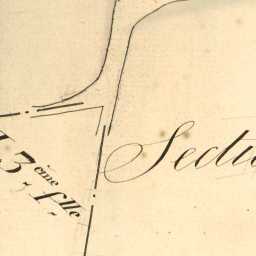 3.ème flle
Sectio